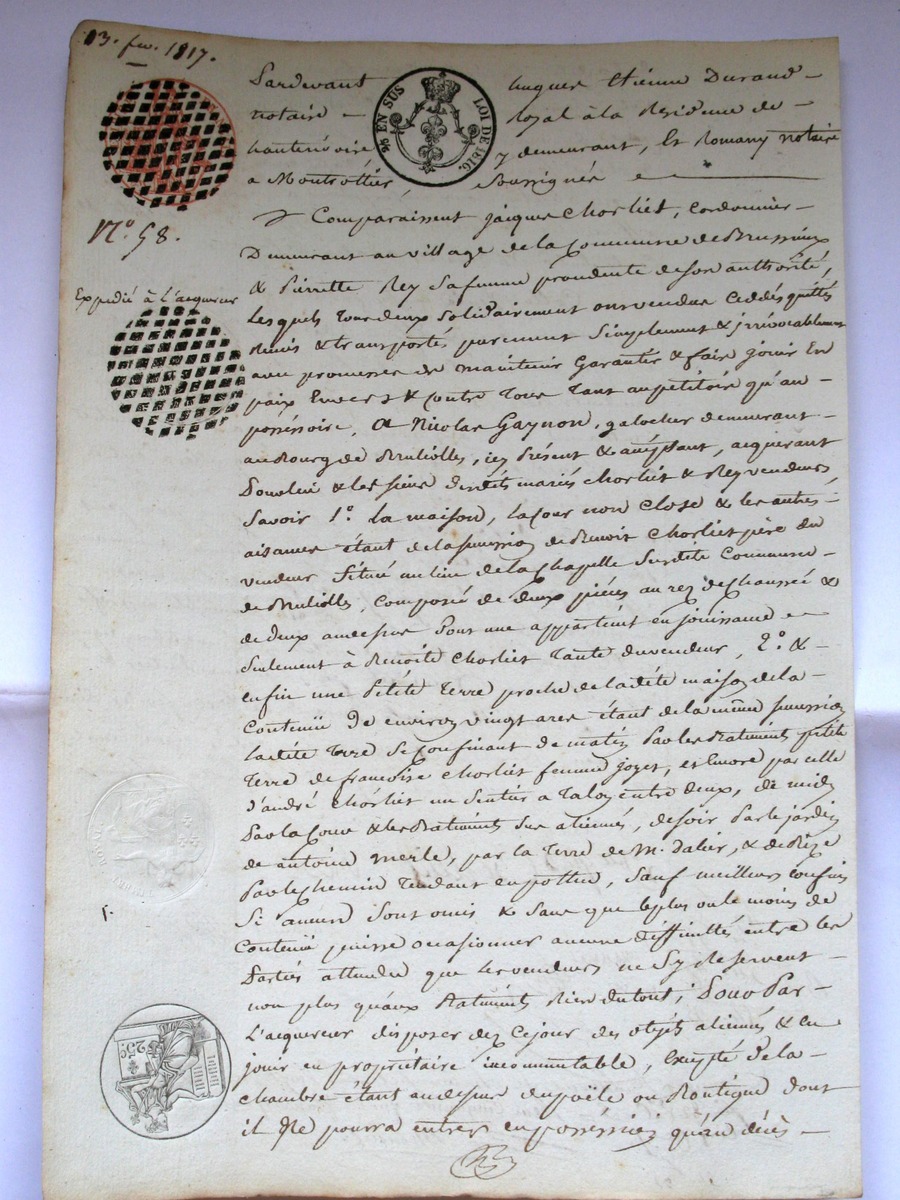 13. fev. 1817.
Pardevant Augues Etienne Durand
notaire Royal à la Residence de
hauterivoire y demeurant, Et Romany notaire
a Montrottier, Soussignés
EN SUS
LOI DE 1816.
N.º 58.
Expedié à l'acquereur
Comparaissent jacques Chorliet, Cordonnier
Demeurant au village de la Commune de Brussieux
& Pierrette Rey sa femme procedente de son authorité,
Lesquels tous deux solidairement ont vendu ceddés quittés
Remis & transportés purement Simplement & irrévocablement
avec promesses de maintenir Garantir & faire jouir En
paix Envers & contre Tous Tant au petitoire qu'au
possessoire, A Nicolas Gaynon, galocher demeurant
au Bourg de Brullolles, icy Présent & acceptant, acquerant
Pour lui & les siens desdits mariés Chorliet & Rey vendeurs,
Savoir 1.º La maison, la Cour non Close & les autres
aisances étant de la succession de Benoit Chorliet père du
vendeur Situé au lieu de la Chapelle Susdite Commune
de Brullolles, Composée de deux pièces au rez de Chaussée &
de deux au dessus Dont une appartient en jouissance
Seulement à Benoite Chorliet Tante du vendeur, 2.º &
enfin une Petite Terre proche de ladite maison de la
Contenüe de environ vingt ares étant de la même succession
Ladite Terre Se Confinant de matin Par les Batiments petite
Terre de francoise Chorliet femme joyet, et encore par celle
d'andré Chorliet un Sentier a Talon entre deux, de midy
Par la Cour & les Batiments Sus aliennés, de soir Par le jardin
de antoine Merle, par la Terre de M. Dalier, & de Bize
Par le Chemin Tendant en pottue, Sauf meilleurs Confins
Si aucuns Sont omis & sans que le plus ou le moins de
Contenüe puisse occasionner aucune difficultés entre les
Parties attendu que les vendeurs ne Sy Reservent
non plus qu'aux Batiments Rien du tout; Pour Par
L'acquereur disposer dez Ce jour des objets aliennés & en
jouir en propriétaire incommutable, Excepté de la
chambre étant au dessus du poële ou Boutique dont
il Ne pourra entrer en possession qu'au décès
25.C.